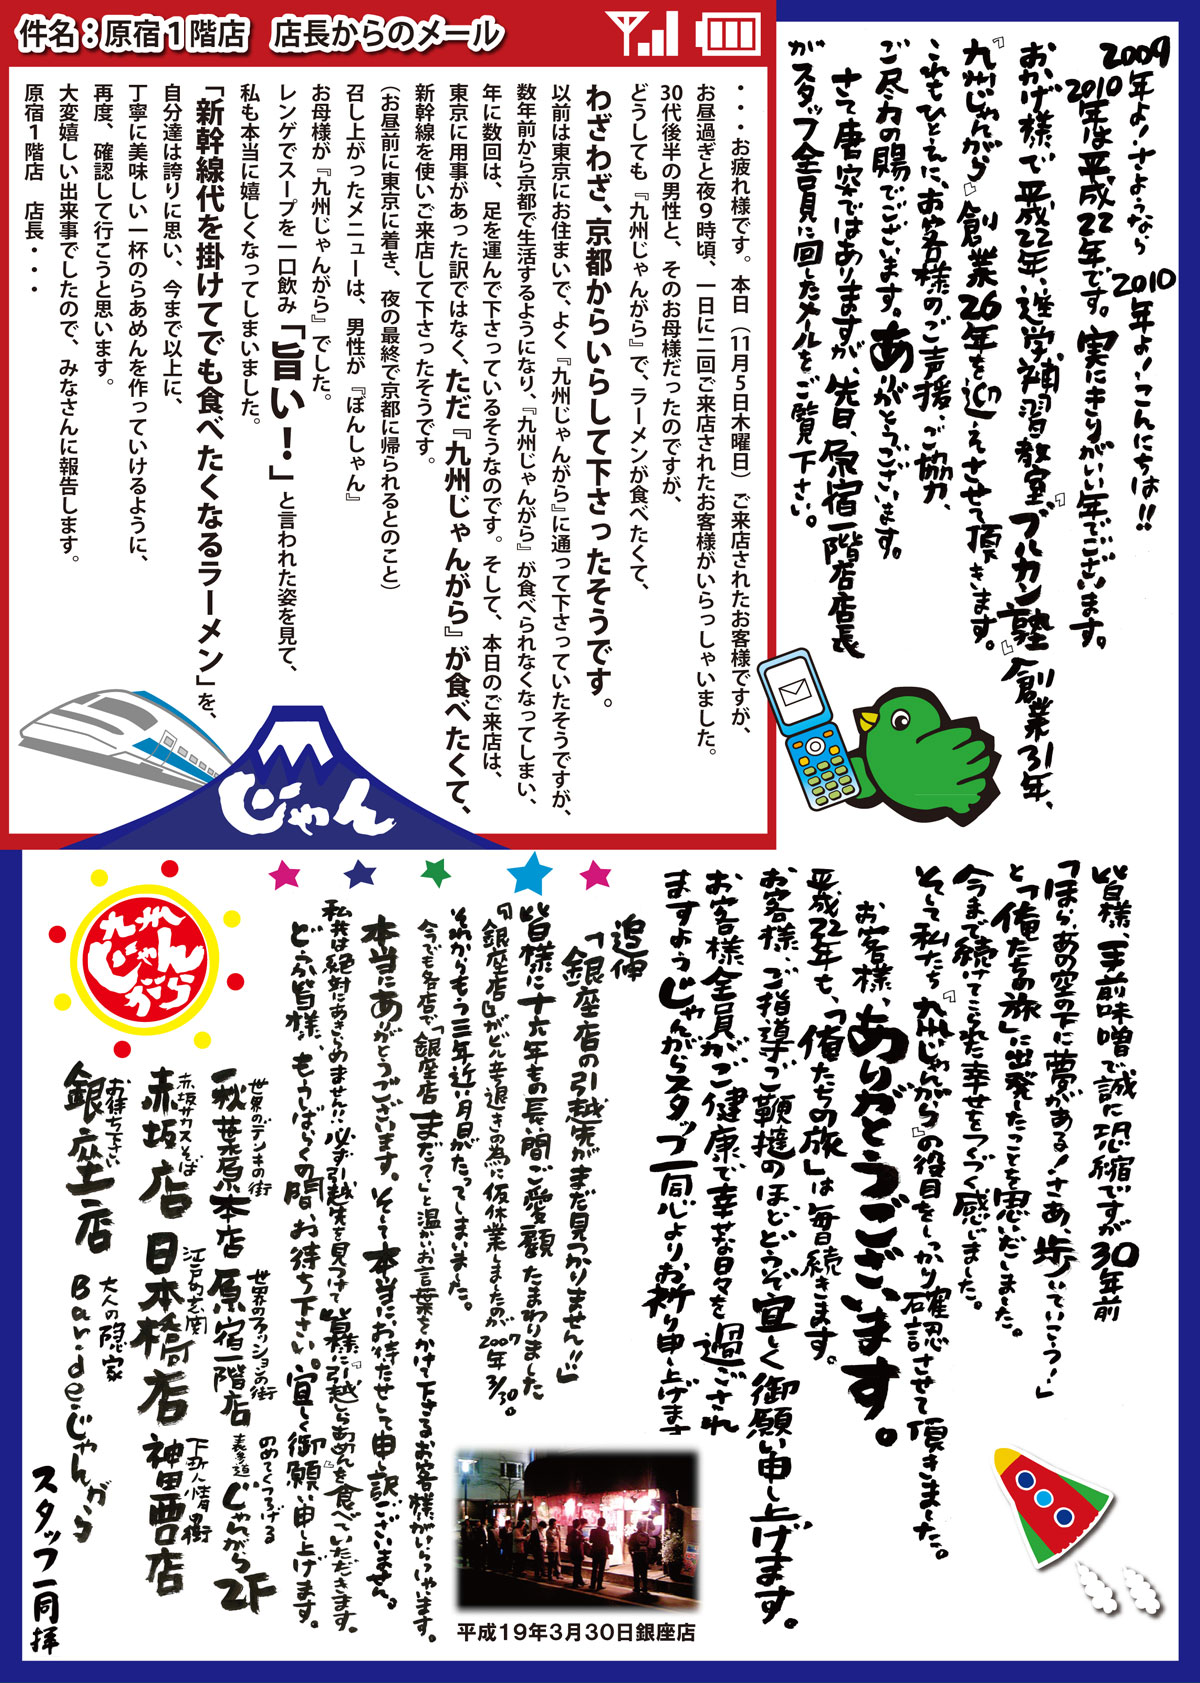 2009年よ!さようなら 2010年よ!こんにちは!!
2010年は平成22年です。実にきりがいい年でございます。
おかげ様で平成22年、進学補習教室『ブルカン塾』創業31年、
『九州じゃんがら』創業26年を迎えさせて頂きます。
これもひとえに、お客様のご声援、ご協力、
ご尽力の賜でございます。ありがとうございます。
さて唐突ではありますが、先日、原宿一階店店長
がスタッフ全員に回したメールをご覧下さい。
件名:原宿1階店 店長からのメール
・・・お疲れ様です。本日(11月5日木曜日)ご来店されたお客様ですが、
お昼過ぎと夜9時頃、一日に二回ご来店されたお客様がいらっしゃいました。
30代後半の男性と、そのお母様だったのですが、
どうしても『九州じゃんがら』で、ラーメンが食べたくて、
わざわざ、京都からいらして下さったそうです。
以前は東京にお住まいで、よく『九州じゃんがら』に通って下さっていたそうですが、
数年前から京都で生活するようになり、『九州じゃんがら』が食べられなくなってしまい、
年に数回は、足を運んで下さっているそうなのです。そして、本日のご来店は、
東京に用事があった訳ではなく、ただ『九州じゃんがら』が食べたくて、
新幹線を使いご来店して下さったそうです。
(お昼前に東京に着き、夜の最終で京都に帰られるとのこと)
召し上がったメニューは、男性が『ぼんしゃん』
お母様が『九州じゃんがら』でした。
レンゲでスープを一口飲み「旨い!」と言われた姿を見て、
私も本当に嬉しくなってしまいました。
「新幹線代を掛けてでも食べたくなるラーメン」を、
自分達は誇りに思い、今まで以上に、
丁寧に美味しい一杯のらあめんを作っていけるように、
再度、確認して行こうと思います。
大変嬉しい出来事でしたので、みなさんに報告します。
原宿1階店 店長・・・
じゃん
皆様、手前味噌で誠に恐縮ですが30年前
「ほら、あの空の下に夢がある!さあ、歩いていこう!」
と「俺たちの旅」に出発したことを思いだしました。
今まで続けてこられた幸せをつくづく感じました。
そして私たち『九州じゃんがら』の役目をしっかり確認させて頂きました。
お客様、ありがとうございます。
平成22年も、「俺たちの旅」は毎日続きます。
お客様、ご指導ご鞭撻のほどどうぞ宜しく御願い申し上げます。
お客様全員がご健康で幸せな日々を過ごされ
ますようじゃんがらスタッフ一同心よりお祈り申し上げます
追伸
「銀座店の引越先がまだ見つかりません!!」
皆様に十六年もの長い間ご愛顧たまわりました
『銀座店』がビル立退きの為に仮休業しましたのが2007年3/30。
それからもう三年近い月日がたってしまいました。
今でも各店で「銀座店まだて?」と温かいお言葉をかけて下さるお客様がいらっしゃいます。
本当にありがとうございます。そして本当にお待たせして申し訳ございません。
私共は絶対にあきらめません!!必ず引越先を見つけて皆様に『引越しらあめん』を食べていただきます。
どうか皆様、もうしばらくの間、お待ち下さい。宜しく御願い申し上げます。
平成19年3月30日銀座店
九州じゃんがら
世界のデンキの街
秋葉原本店
世界のファッションの街
原宿一階店
のめてくつろげる
表参道じゃんがら2F
赤坂サカスそば
赤坂店
江戸の玄関
日本橋店
下町人情の街
神田西店
お待ち下さい
銀座店
大人の隠家
Bar・de・じゃんがら
スタッフ一同拝